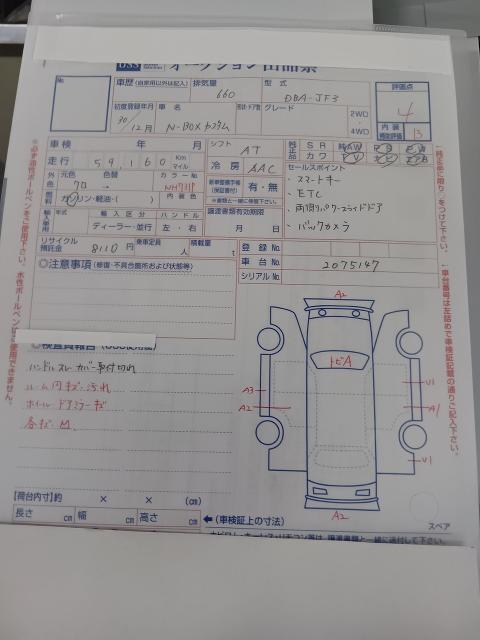 USS オークション出品票
No.
車歴 (自家用以外は記入)
排気量
660
型式
DBA-JF3
評価点
4
内装
補助評価
B
初度登録年月
30/12月
車名
N-BOXカスタム
形状・ドア数
グレード
2WD
4WD
車検 年 月
シフト
AT
純正品
SR
AW
カワ
走行 59,160 Km
マイル
冷房
AAC
セールスポイント
・スマートキー
・ETC
・両側パワースライドドア
・バックカメラ
外色
元色
クロ
色替
カラーNo
NH731P
新車整備手帳
(保証書付)
有・無
燃料
ガソリン・軽油・( )
内装色
輸入車用
年式
輸入区分
ディーラー・並行
ハンドル
左・右
譲渡書類有効期限
月 日
リサイクル
預託金
8110円
乗車定員
人
積載量
t
登録No.
車台No.
2075147
シリアルNo.
◎注意事項 (修復・不具合箇所および状態等)
※必ず油性ボールペンをご使用下さい。水性ボールペンは使用できません。
◎検査員報告 (USS使用欄)
ルーム内キズ汚れ
ホイールドアミラーキズ
各キズM
A2
トビA
A3
A2
U1
A1
U1
A2
【荷台内寸】約 × × (cm)
長さ cm
幅 cm
高さ cm
←(車検証上の寸法)
スペア